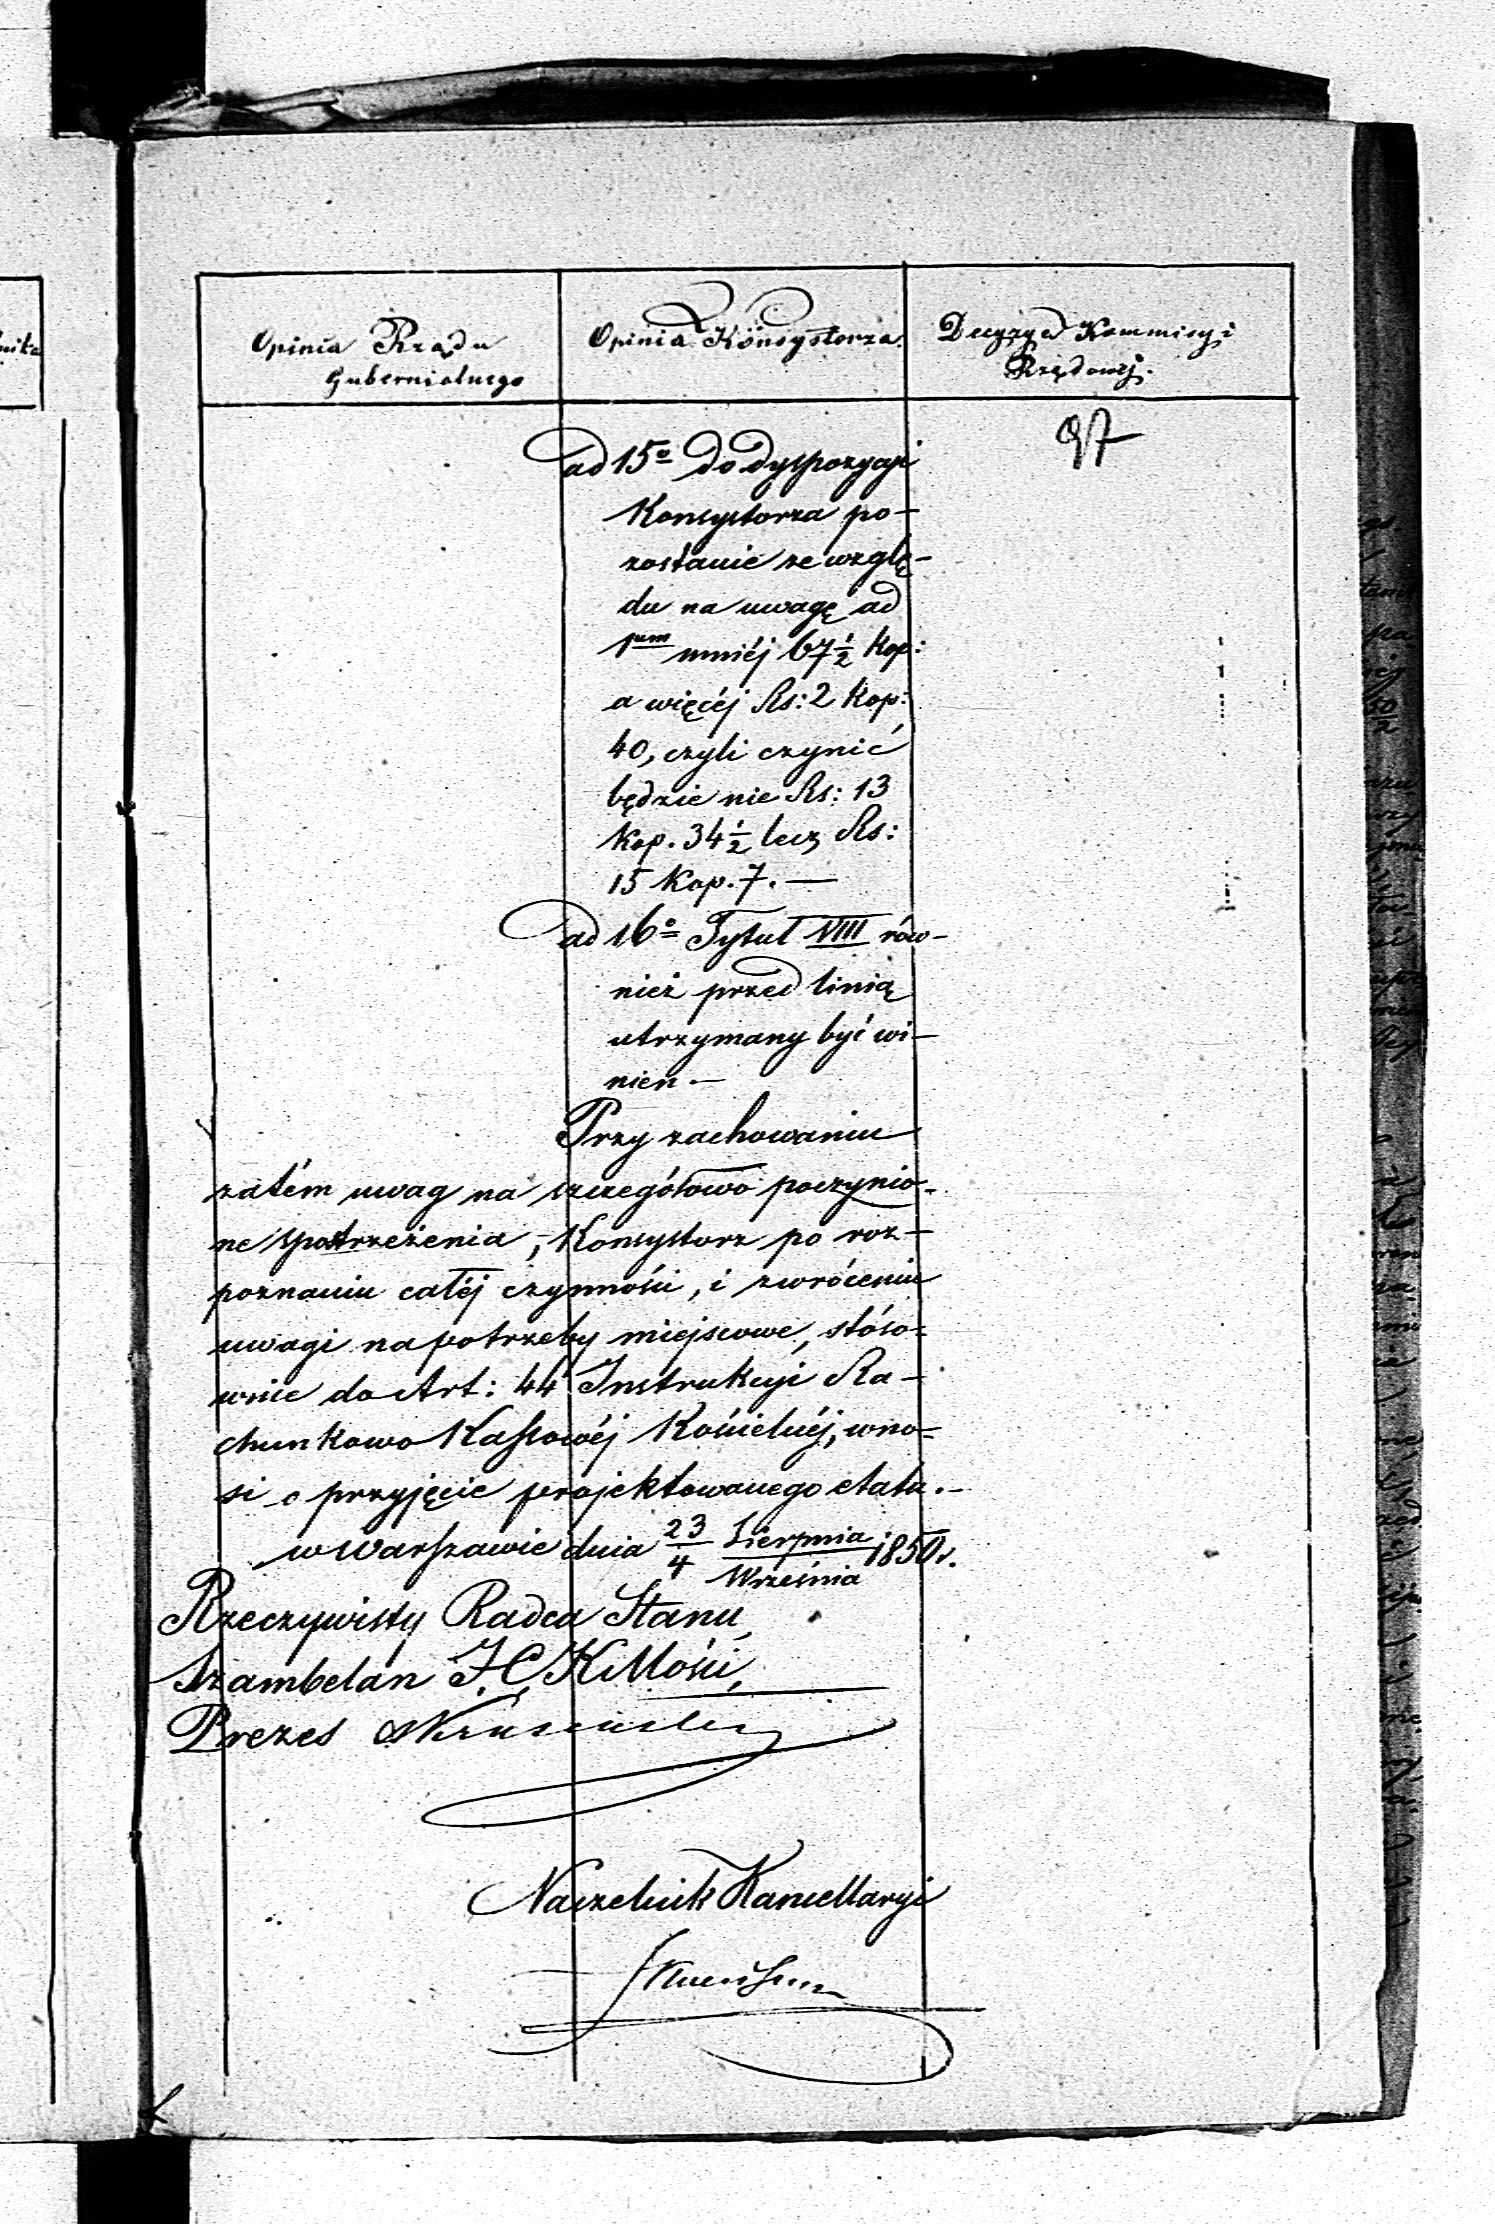 Opinia Rządu
Gubernialnego
Opinia Konsystorza.
Decyzya Kommisyi
Rządowej.
97
ad 15º do dyspozycji
Konsystorza po-
zostanie ze wzglę-
du na uwagę ad
1um mniéj 67½ kop:
a więcéj Rs: 2 kop:
40, czyli czynić
będzie nie Rs: 13
kop. 34½ lecz Rs:
15 kop. 7. —
ad 16º Tytuł VIII rów-
nież przed linią
utrzymany być wi-
nien. —
Przy zachowaniu
zatém uwag na szczegółowo poczynio-
ne spostrzeżenia, Konsystorz po roz-
poznaniu całéj czynności, i zwróceniu
uwagi na potrzeby miejscowe, stóso-
wnie do Art: 44 Instrukcyi Ra-
chunkowo Kassowéj Kościelnéj, wno-
si o przyjęcie projektowanego etatu. —
w Warszawie dnia 23/4 Sierpnia/Września 1850 r.
Rzeczywisty Radca Stanu,
Szambelan J. C. K Mości,
Prezes
Naczelnik Kancellaryi